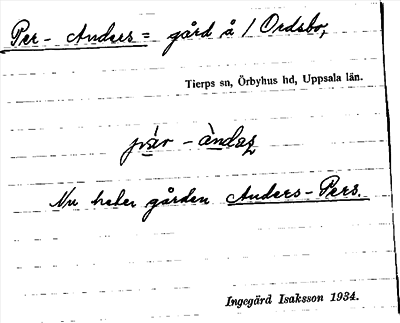 Per-Anders = gård å 1 Ordsbo,
Tierps sn, Örbyhus hd, Uppsala län.
pär - àndaʂ
Nu heter gården Anders-Pers.
Ingegärd Isaksson 1934.